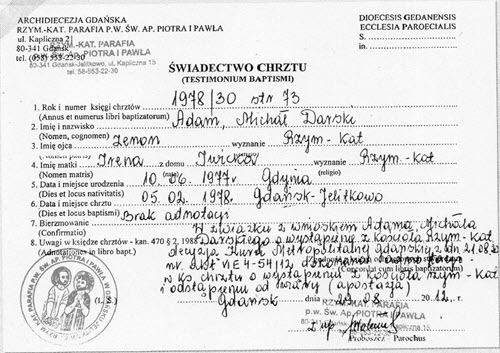 ARCHIDIECEZJA GDAŃSKA
RZYM.-KAT. PARAFIA P.W. ŚW. AP. PIOTRA I PAWŁA
ul. Kapliczna 2
80-341 Gdańsk
tel. (058) 553-22-30
RZYM.-KAT. PARAFIA
p.w. ŚW. AP. PIOTRA I PAWŁA
80-341 Gdańsk-Jelitkowo, ul. Kapliczna 15
tel. 58-553-22-30
DIOECESIS GEDANENSIS
ECCLESIA PAROECIALIS
S.
in
ŚWIADECTWO CHRZTU
(TESTIMONIUM BAPTISMI)
1. Rok i numer księgi chrztów 1978/30 str 73
(Annus et numerus libri baptizatorum)
2. Imię i nazwisko Adam, Michał Darski
(Nomen, cognomen)
3. Imię ojca Zenon wyznanie Rzym-kat
4. Imię matki Irena z domu wyznanie Rzym-kat
(Nomen matris) (nata) (religio)
5. Data i miejsce urodzenia 10.06.1977r Gdynia
(Dies et locus nativitatis)
6. Data i miejsce chrztu 05.02.1978. Gdańsk-Jelitkowo
(Dies et locus baptismi)
7. Bierzmowanie Brak adnotacji
(Confirmatio)
8. Uwagi w księdze chrztów - kan. 470 § 2, 1988
(Adnotationes in libro bapt.)
W związku z wnioskiem Adama, Michała
Darskiego o wystąpienie z kościoła Rzym-kat
decyzją Kurii Metropolitalnej Gdańskiej z dn.
nr. 4-54/12, dokonano
(Concordat cum libris baptizatorum)
w ks. chrztu o wystąpieniu z kościoła rzym-kat
i odstąpieniu od wiary (apostazja)
(L. S.)
Gdańsk dnia 29.08.2012 r.
RZYM.-KAT. PARAFIA
p.w. ŚW. AP. PIOTRA I PAWŁA
Proboszcz Parochus